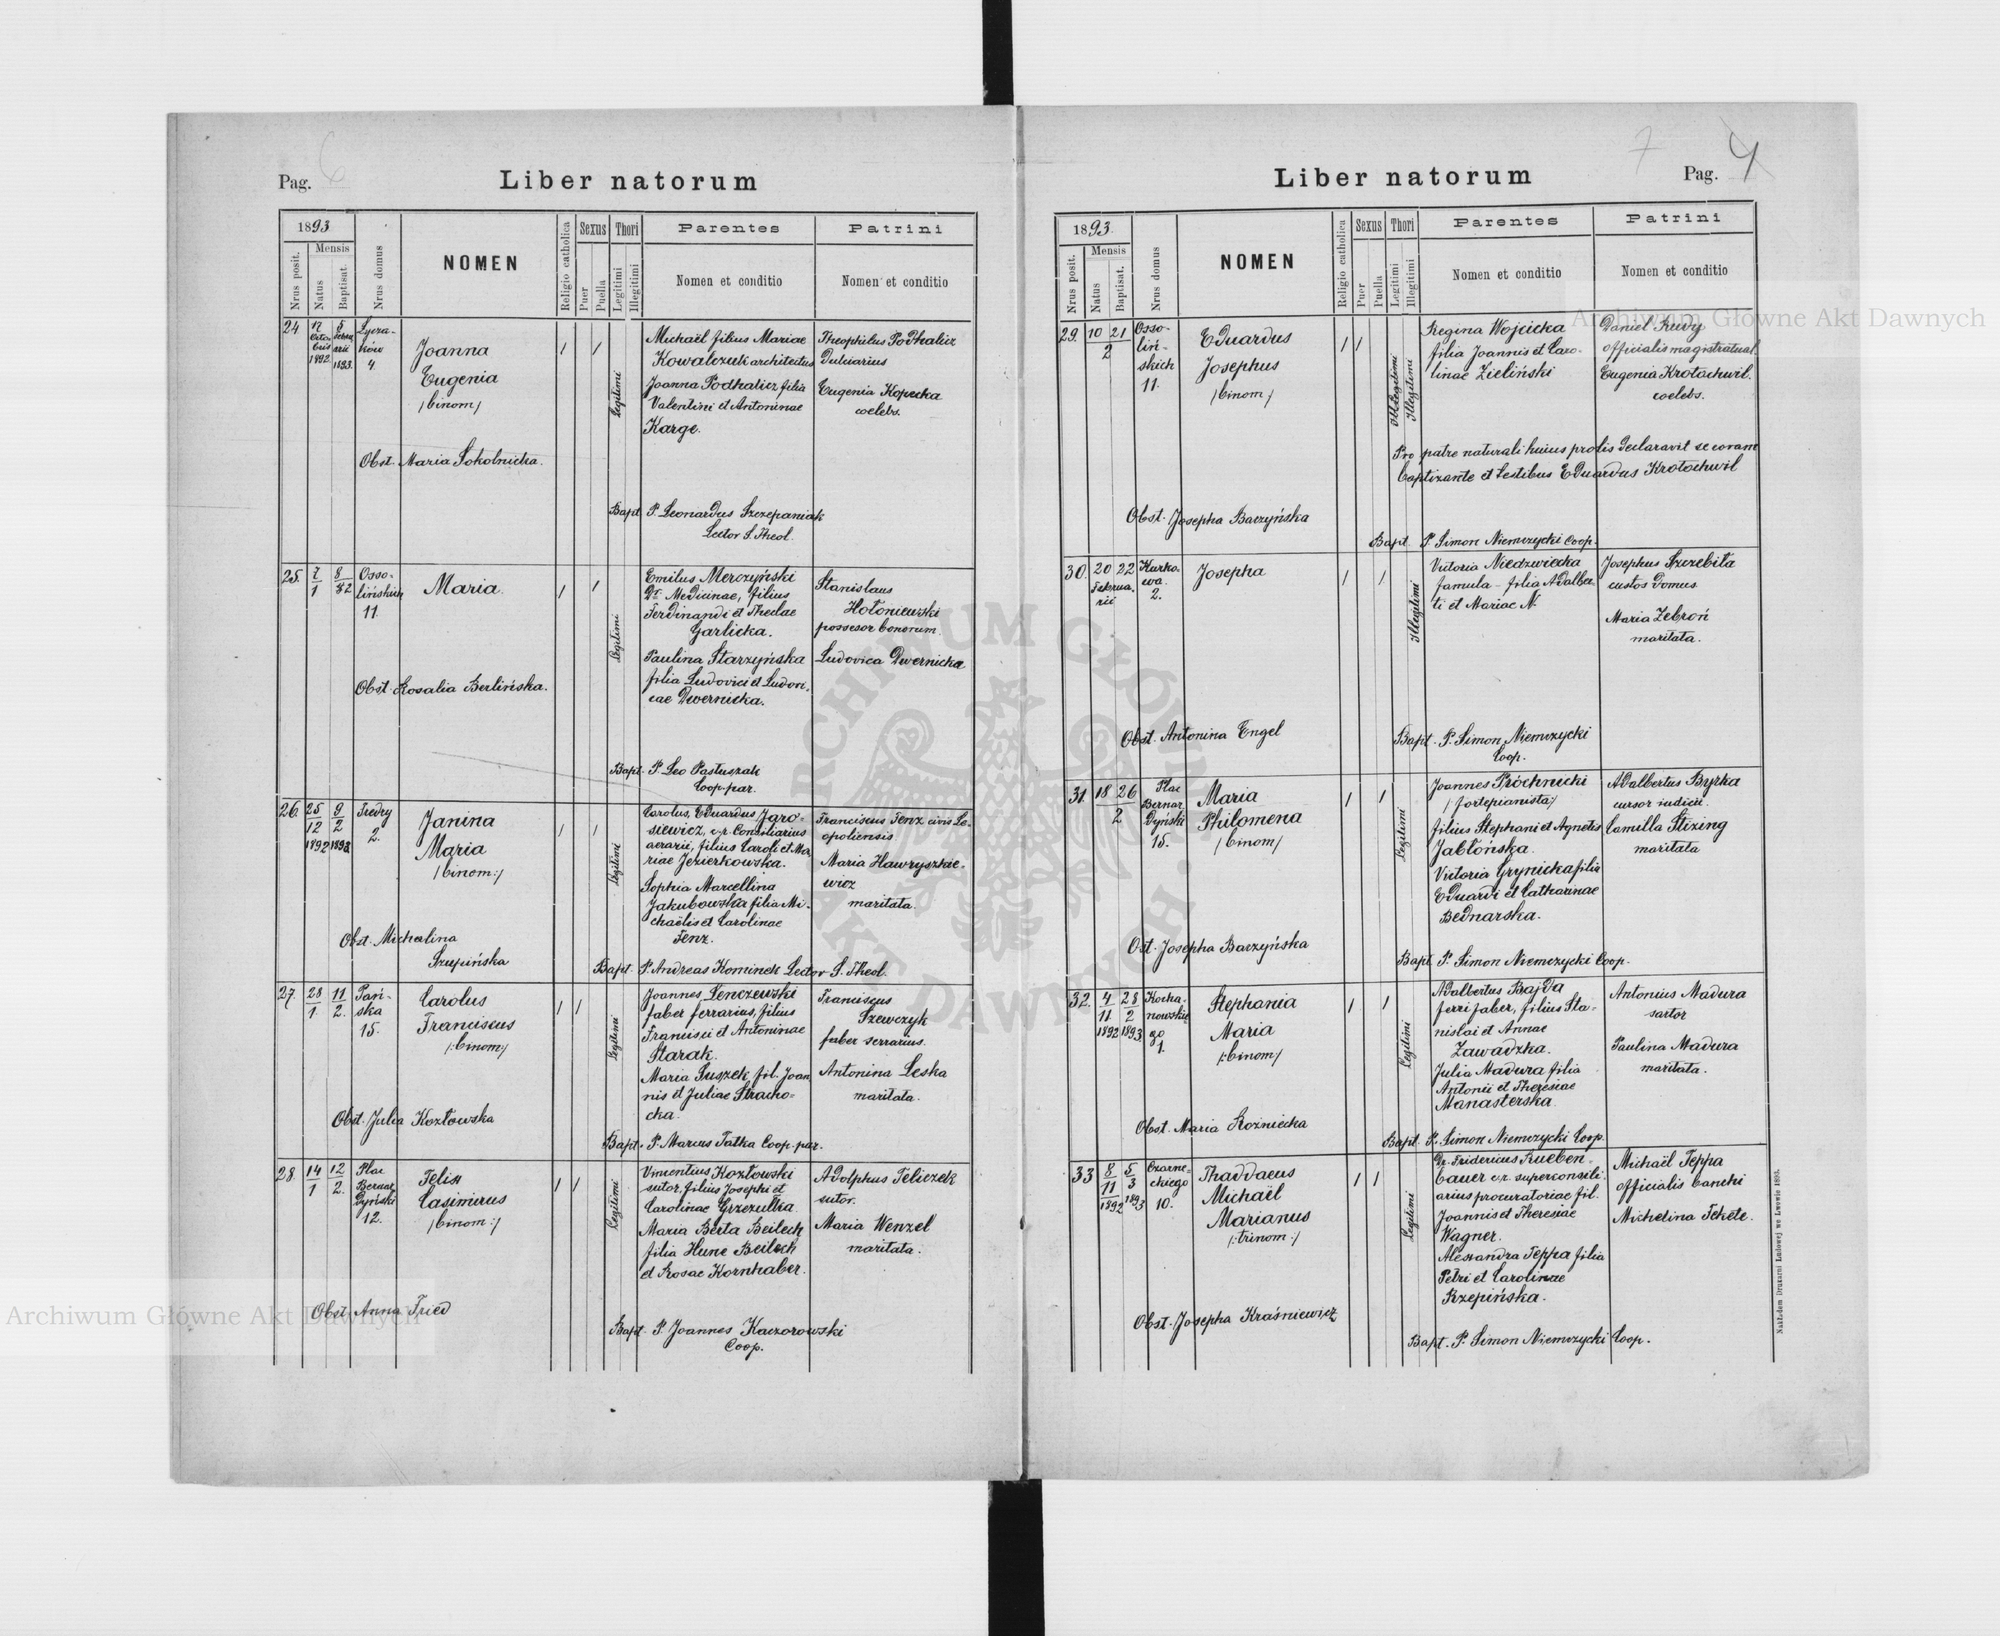 Pag. 6
Liber natorum
1893
Nrus posit.
Mensis
Natus
Baptisat.
Nrus domus
NOMEN
Religio catholica
Sexus
Puer
Puella
Thori
Legitimi
Illegitimi
Parentes
Nomen et conditio
Patrini
Nomen et conditio
24
12 Octobris 1892
5 Februarii 1893
Łycza-
ków
4.
Joanna
Eugenia
/binom/
Legitimi
Michaël filius Mariae
Kowalczuk architectus
Joanna Podhalicz filia
Valentini et Antoninae
Karge.
Theophilus Podhalicz
Dulciarius
Eugenia Kopecka
coelebs.
Obst. Maria Sokolnicka.
Bapt. P. Leonardus Szczepaniak
Lector S. Theol.
25.
7/1
8/2
Osso-
lińskich
11.
Maria.
Legitimi
Emilus Merczyński
Dr Medicinae, filius
Ferdinandi et Theclae
Garlicka.
Paulina Starzyńska
filia Ludovici et Ludovi-
cae Dwernicka.
Stanislaus
Hołoniewski
possesor bonorum.
Ludovica Dwernicka
Obst. Rosalia Berlińska.
Bapt. P. Leo Pastuszak
Coop. par.
26.
25/12 1892
9/2 1893.
Fredry
2.
Janina
Maria
/binom:/
Legitimi
Carolus, Eduardus Jaro-
siewicz, c.r. Consiliarius
aerarii, filius Caroli et Ma-
riae Jezierkowska.
Sophia Marcellina
Jakubowska filia Mi-
chaëlis et Carolinae
Tenz.
Franciscus Tenz civis Le-
opoliensis
Maria Hawryszkie-
wicz
maritata.
Obst. Michalina
Szupińska
Bapt. P. Andreas Kominek Lector S. Theol.
27
28/1.
11/2.
Pań-
ska
15.
Carolus
Franciscus
/:binom:/
Legitimi
Joannes Lenczewski
faber ferrarius, filius
Francisci et Antoninae
Starak.
Maria Suszek fil. Joan
nis et Juliae Stracho-
cka.
Franciscus
Szewczyk
faber serrarius.
Antonina Leska
maritata.
Obst. Julia Kozłowska
Bapt. P. Marcus Tatka Coop. par.
28.
14/1
12/2.
Plac
Bernar
dyński
12.
Felix
Casimirus
/binom:/
Legitimi
Vincentius Kozłowski
sutor, filius Josephi et
Carolinae Grzezulka.
Maria Berta Beilech
filia Hune Beilech
et Rosae Kornhaber.
Adolphus Feliczek
sutor.
Maria Wenzel
maritata.
Obst. Anna Fried
Bapt. P. Joannes Kaczorowski
Coop.
7
Pag. 4
Liber natorum
1893.
Nrus posit.
Mensis
Natus
Baptisat.
Nrus domus
NOMEN
Religio catholica
Sexus
Puer
Puella
Thori
Legitimi
Illegitimi
Parentes
Nomen et conditio
Patrini
Nomen et conditio
29.
10 21
2
Osso-
liń-
skich
11.
Eduardus
Josephus
/binom/
Illegitimi
Regina Wojcicka
filia Joannis et Caro-
linae Zieliński
Daniel Rudy
officialis magistratual.
Eugenia Krotochwil.
coelebs.
Pro patre naturali huius prolis declaravit se coram
baptizante et testibus Eduardus Krotochwil
Obst. Josepha Baczyńska
Bapt. P. Simon Niemczycki Coop.
30.
20 22
Februa-
rii
Kurko-
wa.
2.
Josepha
Illegitimi
Victoria Niedzwiecka
famula - filia Adalber
ti et Mariae N.
Josephus Szczebita
custos domus
Maria Zebroń
maritata.
Obst. Antonina Engel
Bapt. P. Simon Niemczycki
Coop.
31.
18 26
2
Plac
Bernar
dyński
15.
Maria
Philomena
/binom/
Legitimi
Joannes Próchnicki
/fortepianista/
filius Stephani et Agnetis
Jabłońska.
Victoria Grynicka filia
Eduardi et Catharinae
Bednarska.
Adalbertus Byrka
cursor iudicii.
Camilla Stizing
maritata
Ost. Josepha Baczyńska
Bapt. P. Simon Niemczycki Coop.
32.
4/11 1892
28/2 1893.
Kocha-
nowskie
go
1.
Stephania
Maria
/:binom/
Legitimi
Adalbertus Bajda
ferri faber, filius Sta-
nislai et Annae
Zawadzka.
Julia Madura filia
Antonii et Theresiae
Manasterska.
Antonius Madura
sartor
Paulina Madura
maritata.
Obst. Maria Rozniecka
Bapt. P. Simon Niemczycki Coop.
33
8/11 1892
5/3 1893
Czarne-
ckiego
10.
Thaddaeus
Michaël
Marianus
/:trinom:/
Legitimi
Dr. Fridericus Rueben-
bauer c.r. superconsili-
arius procuratoriae fil.
Joannis et Theresiae
Wagner.
Alexandra Teppa filia
Petri et Carolinae
Rzepińska.
Michaël Teppa
officialis banchi
Michelina Fekete.
Obst. Josepha Kraśniewicz
Bapt. P. Simon Niemczycki Coop.
Nakładem Drukarni Ludowej we Lwowie 1893.
Archiwum Główne Akt Dawnych
Archiwum Główne Akt Dawnych
ARCHIWUM GŁÓWNE AKT DAWNYCH